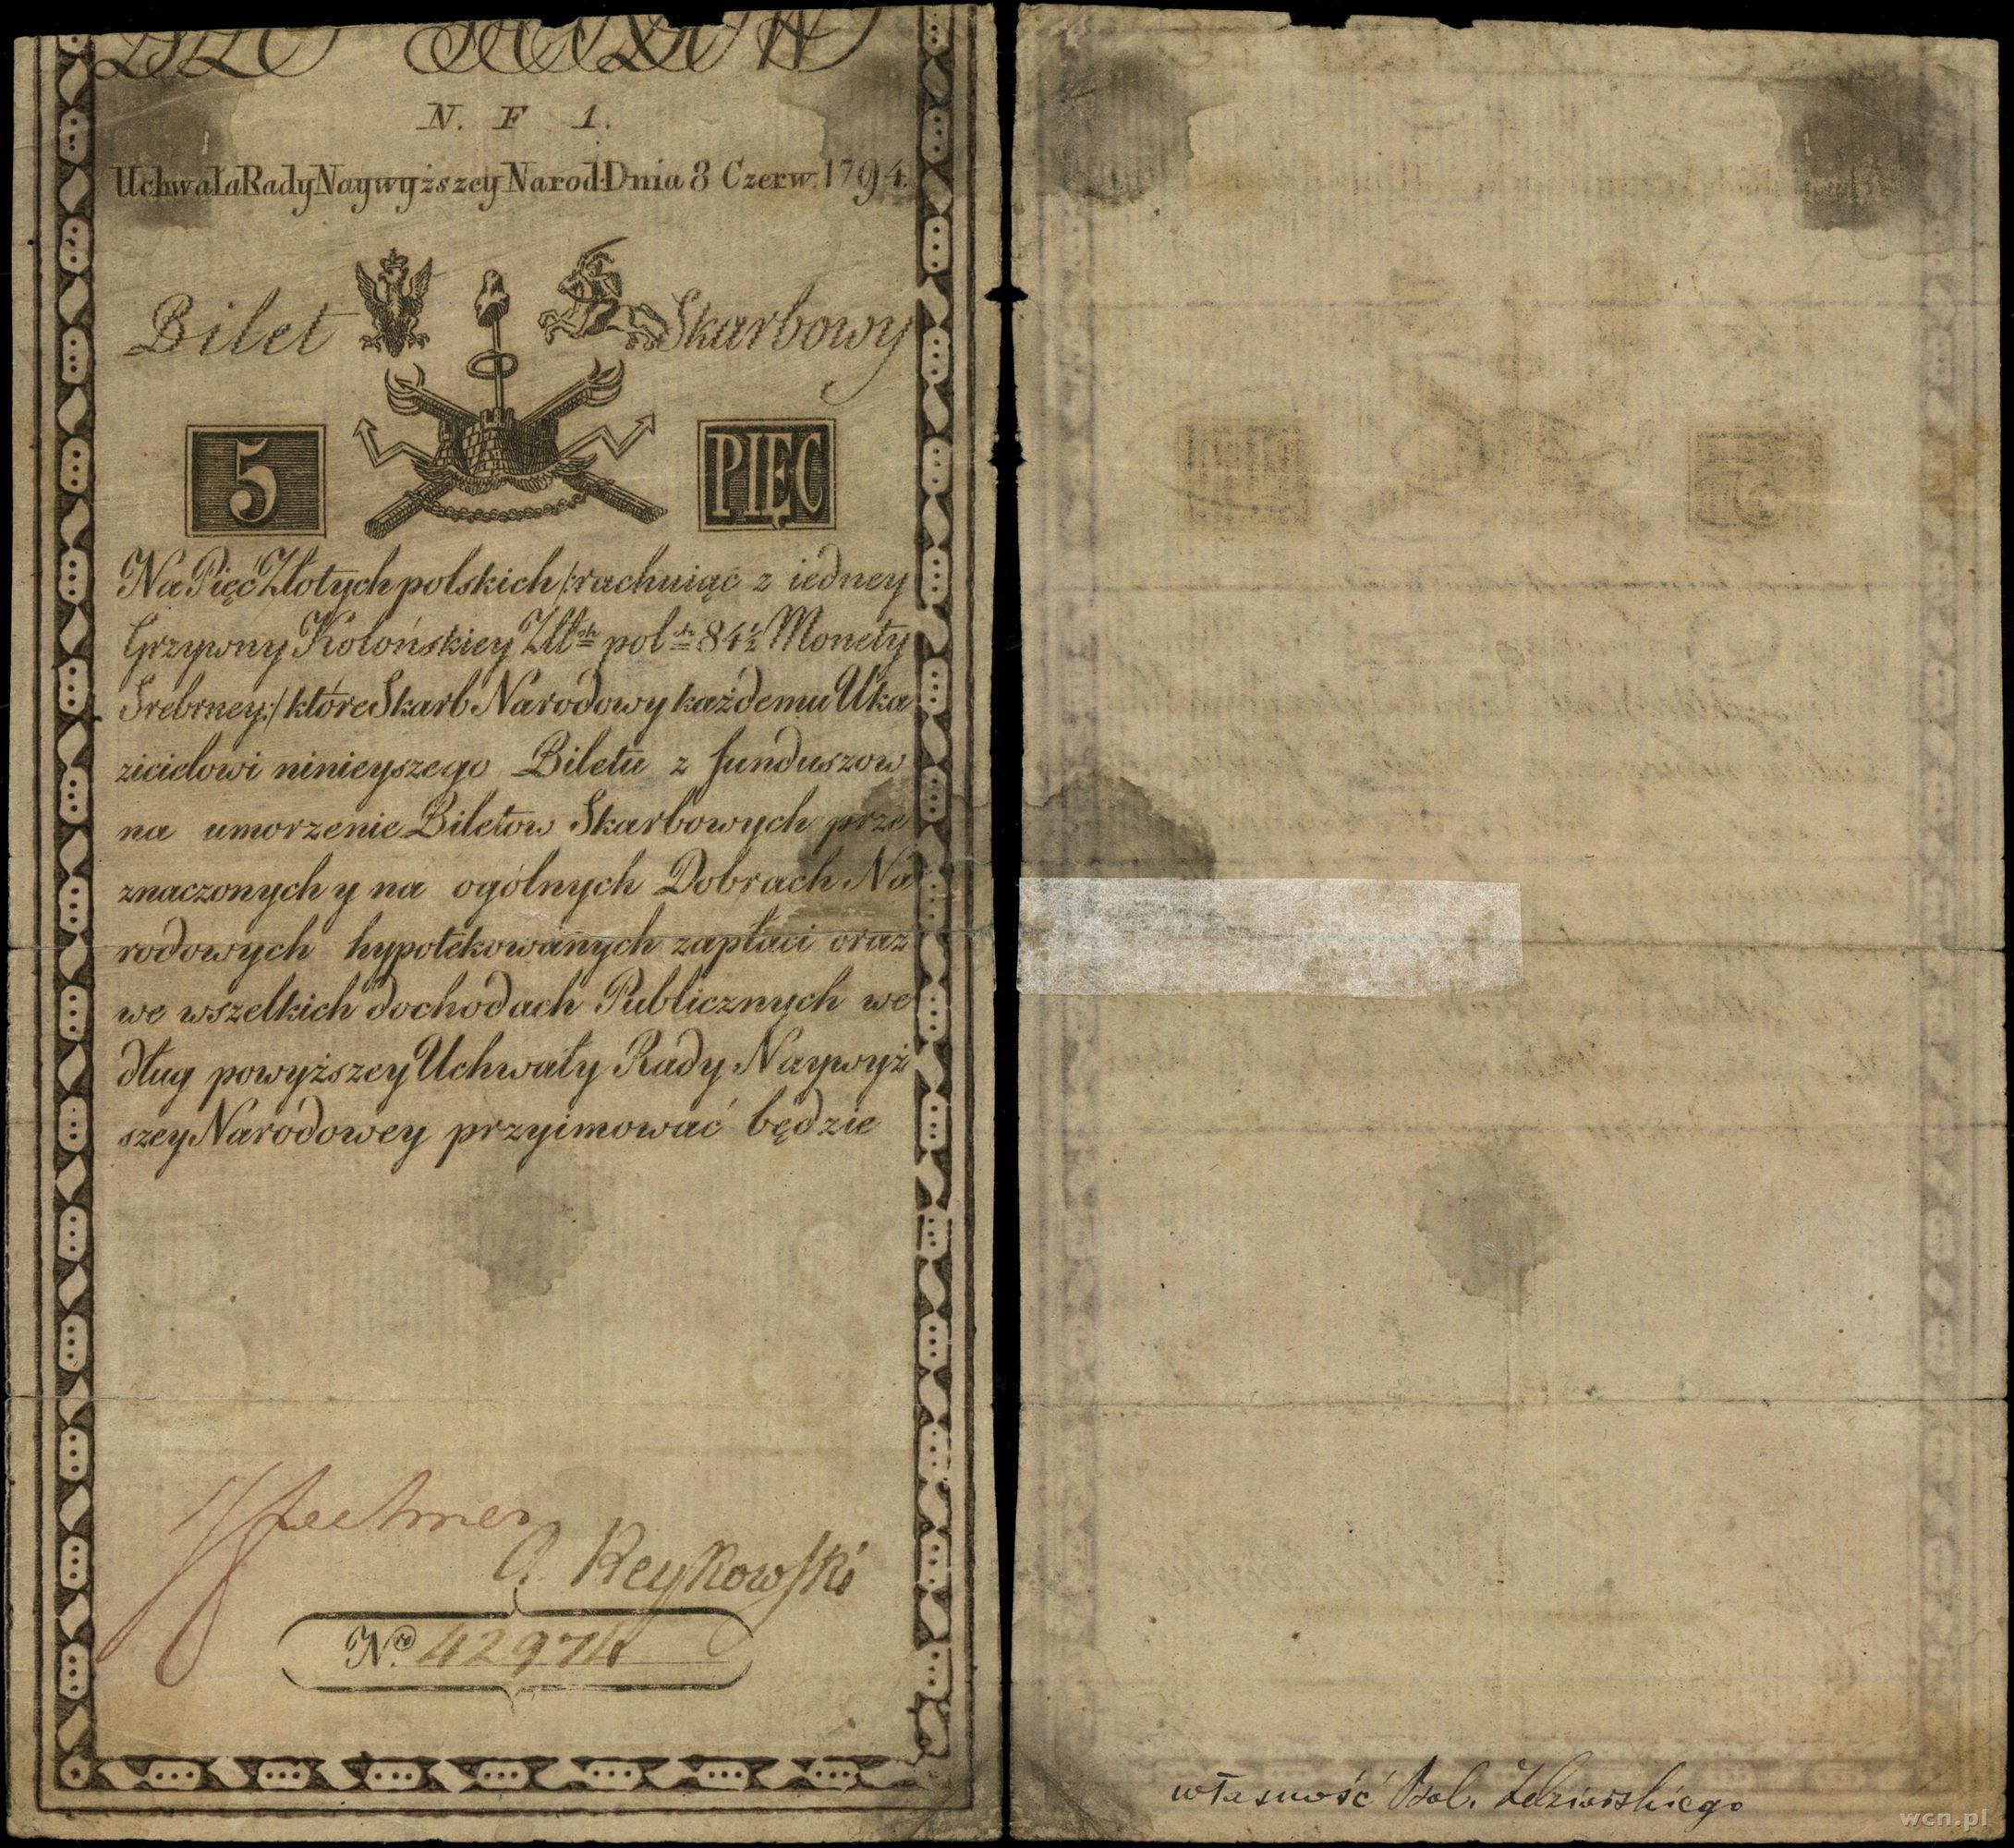 N. F 1.
Uchwała Rady Naywyższey Narod: Dnia 8 Czerw. 1794.
Bilet Skarbowy
5 PIĘC
Na Pięć Złotych polskich /:rachuiąc z iedney
Grzywny Kolońskiey Złł ch pol ch 84½ Monety
Srebrney:/ które Skarb Narodowy każdemu Uka
zicielowi ninieyszego Biletu z funduszow
na umorzenie Biletow Skarbowych prze
znaczonych y na ogólnych Dobrach Na
rodowych hypotekowanych zapłaci oraz
we wszelkich dochodach Publicznych we
dług powyższey Uchwały Rady Naywyż
szey Narodowey przyimować będzie
A. Reykowski
Nro. 42974
własność Bol. Zdziarskiego
wcn.pl